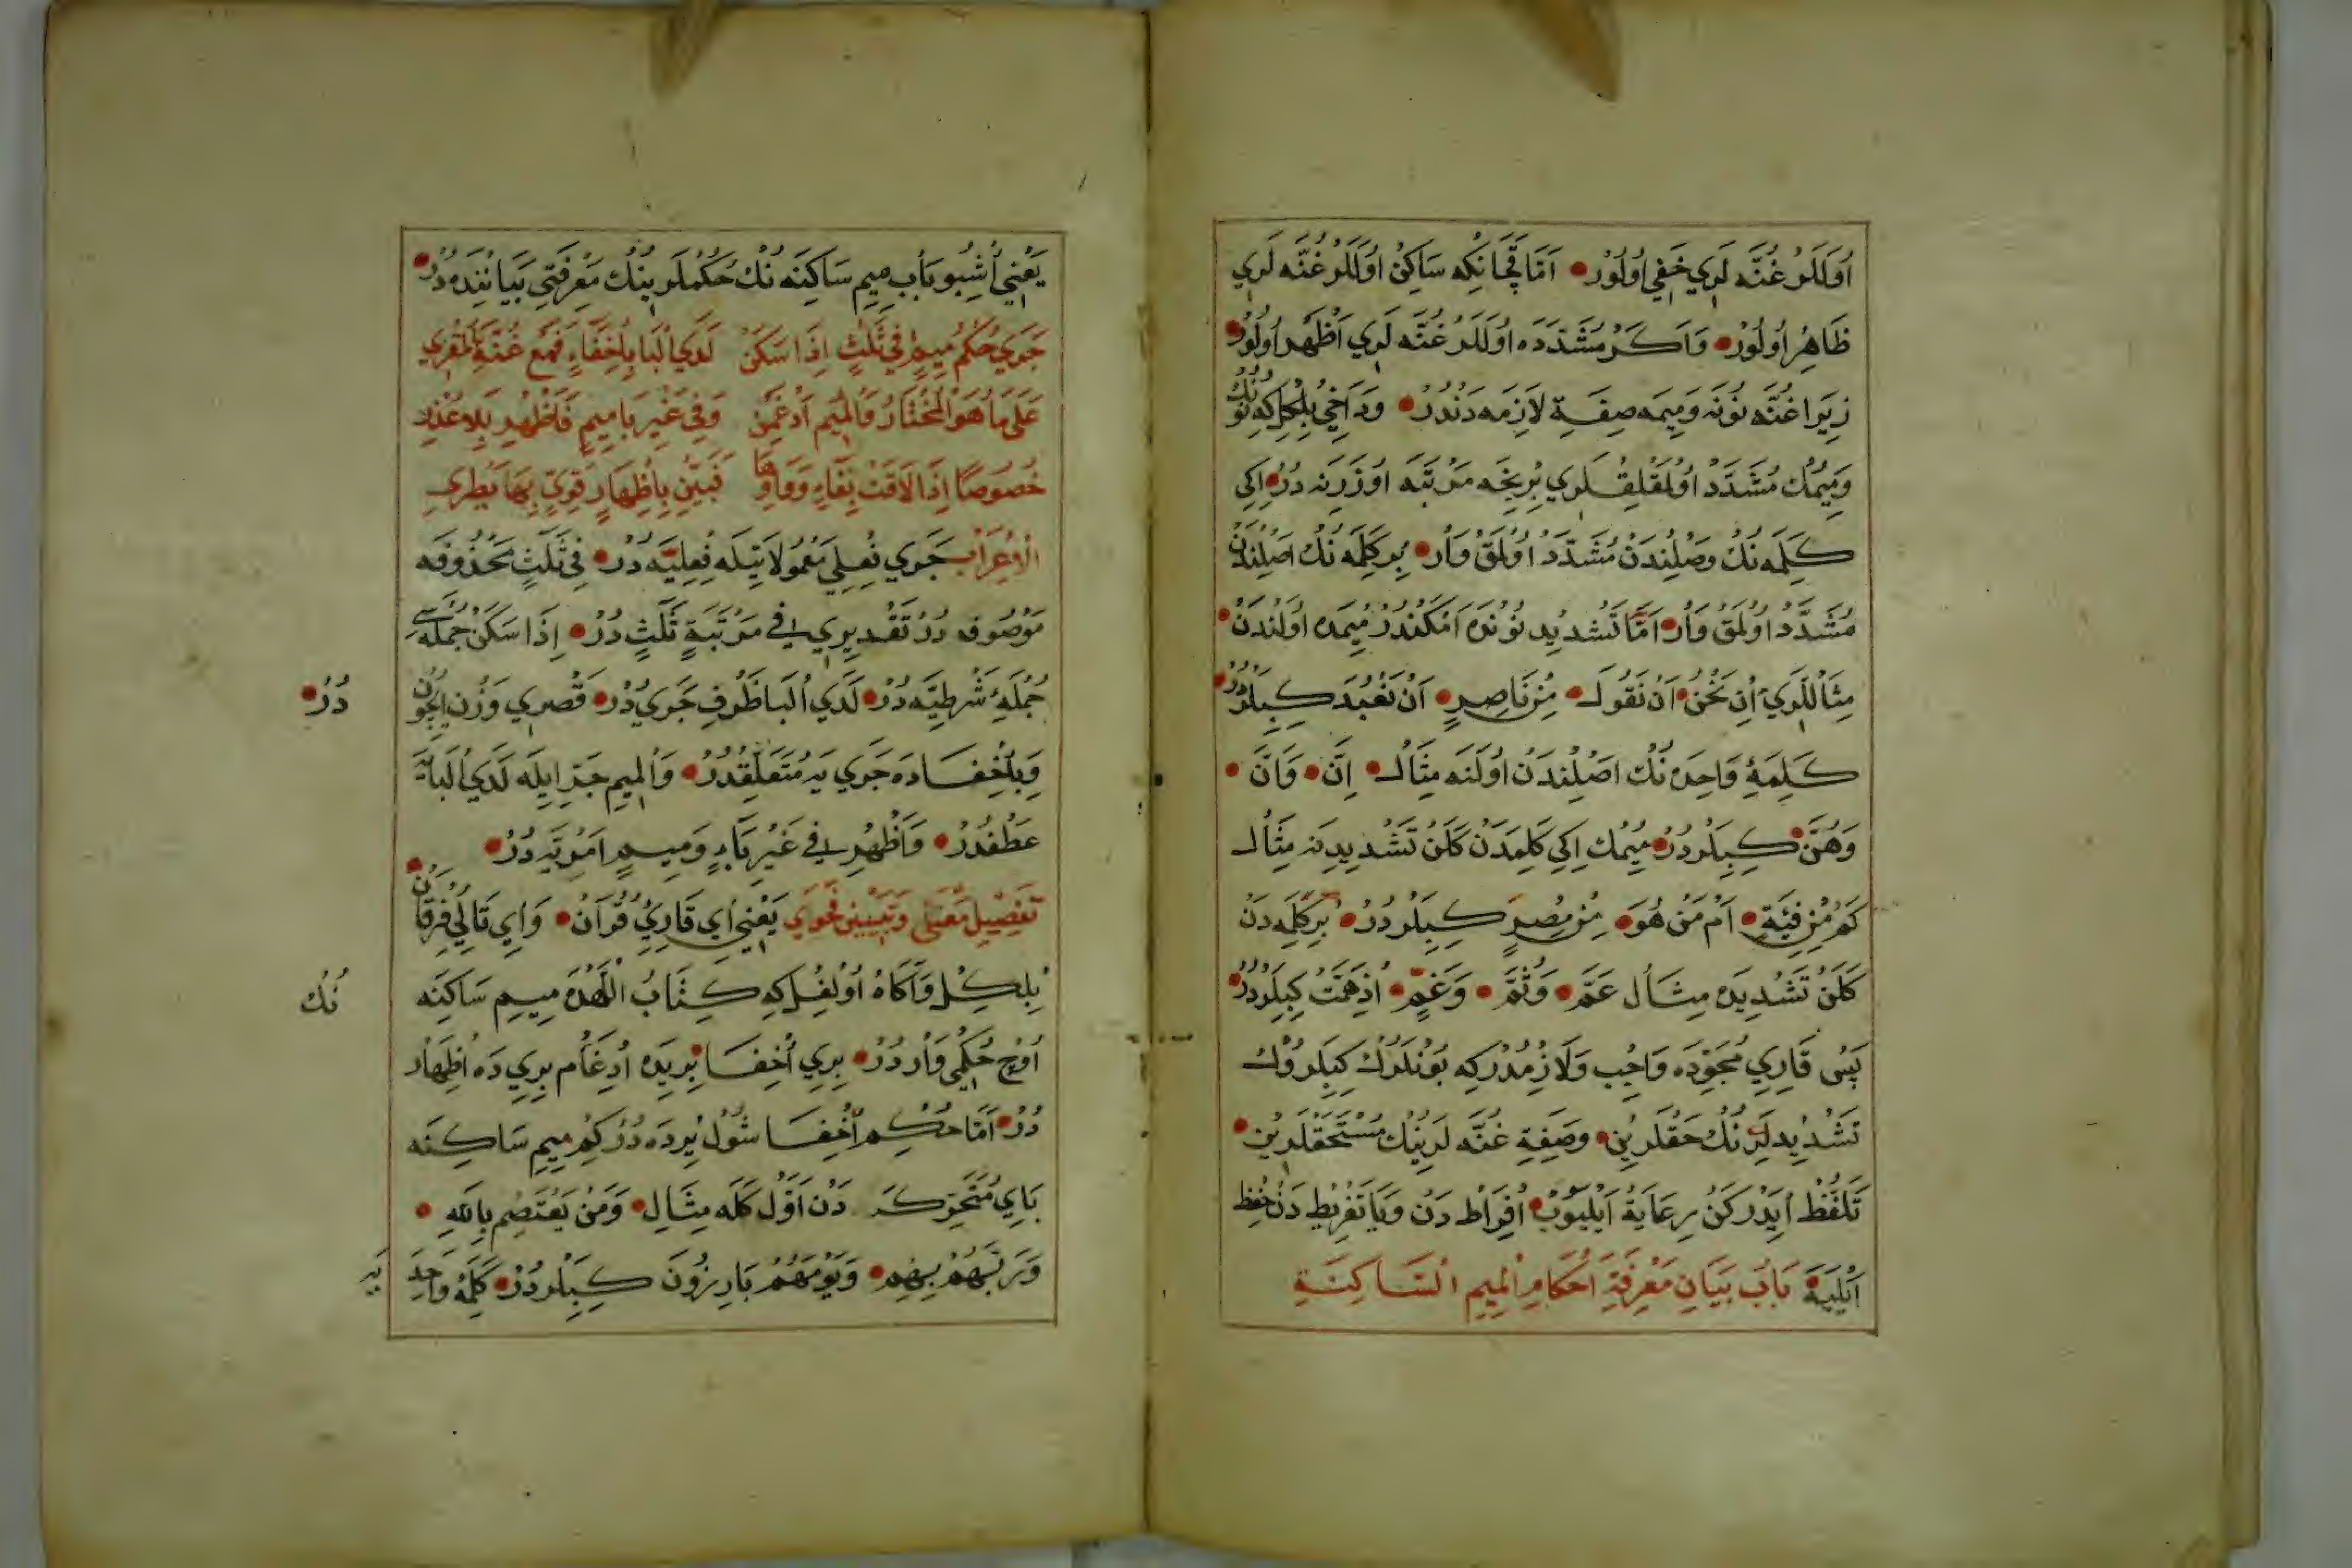 اُولَلَرْ غُنَّه لَرِي خَفِي اُولُوْر • اَمَّا قَچَانْكِه سَاكِنْ اُولَلَرْ غُنَّه لَرِي
ظَاهِرْ اُولُوْر • وَاَكَرْ مُشَدَّدَه اُولَلَرْ غُنَّه لَرِي اَظْهَرْ اُولُوْر •
زِيَرا غُنَّه نُونَه وَمِيمَه صِفَةِ لَازِمَه دَنْدُرْ • وَدَاخِي بِلْكِلْكِه نُونُكْ
وَمِيمُكْ مُشَدَّدْ اُولْمَقْلِقْلَرِي بِرْنِيجَه مَرْتَبَه اُوزَرِنَه دُرْ • اِكِي
كَلِمَه نُكْ وَصْلِنْدَنْ مُشَدَّدْ اُولْمَقْ وَارْ • بِرْ كَلِمَه نُكْ اَصْلِنْدَنْ
مُشَدَّدْ اُولْمَقْ وَارْ • اَمَّا تَشْدِيدِ نُونْدَه اَمْكَنْدُرْ مِيمْدَه اُولَنْدَنْ •
مِثَالْلَرِي اِنْ نَحْنُ • اَنْ نَقُولَ • مِنْ نَاصِرٍ • اَنْ نَعْبُدَ كِبِيلَرْدُرْ •
كَلِمَۀِ وَاحِدَه نُكْ اَصْلِنْدَنْ اُولَنَه مِثَالْ • اِنَّ • وَاَنَّ •
وَهُنَّ • كِبِيلَرْدُرْ • مِيمُكْ اِكِي كَلِمَدَنْ كَلَنْ تَشْدِيدِنَه مِثَالْ
كَمْ مِنْ فِئَةٍ • اَمْ مَنْ هُوَ • مِنْ مِصْرٍ كِبِيلَرْدُرْ • بِرْ كَلِمَه دَنْ
كَلَنْ تَشْدِيدَه مِثَالْ عَمَّ • وَثُمَّ • وَغَمٍّ • اِذْهَمَّتْ كِبِيلَرْدُرْ
پَسْ قَارِي مُجَوِّدَه وَاجِبْ وَلَازِمْدُرْكِه بُونْلَرُكْ كِبِيلَرُوْكْ
تَشْدِيدلَرِنُكْ حَقْلَرِيْن • وصِفَةِ غُنَّه لَرِينُكْ مُسْتَحَقْلَرِيْن •
تَلَفُّظْ اَيْدَرْكَنْ رِعَايَةْ اَيْلِيُوبْ • اِفْرَاطْ دَنْ وَيَا تَفْرِيطْ دَنْ حِفْظ
اَيْلِيَه • بَابُ بَيَانِ مَعْرِفَةِ اَحْكَامِ الْمِيمِ السَّاكِنَةِ
يَعْنِي اُشْبُو بَابْ مِيمِ سَاكِنَه نُكْ حُكُمْلَرِينُكْ مَعْرِفَتِي بَيَانِنْدَه دُرْ •
جَرَي حُكْمُ مِيمٍ فِي ثَلَثٍ اِذَا سَكَنْ لَدَي الْبَا بِاِخْفَاءٍ فَمَعْ غُنَّةِ الْمُقْرِي
عَلَي مَا هُوَ الْمُخْتَارُ وَالْمِيمِ اَدْغِمَنْ وَفِي غَيْرِ بَا مِيمٍ فَاَظْهِرْ بِلَا عُذْرٍ
خُصُوصًا اِذَا لَاقَتْ بِفَاءٍ وَوَاوِهَا فَبَيِّنْ بِاِظْهَارٍ قَوِيٍّ بِهَا يَطْرِي
اَلْاِعْرَابْ جَرَي فِعْلِي مَعْمُولَاتِيلَه فِعْلِيَّه دُرْ • فِي ثَلَثٍ مَحْذُوفَه
مَوْصُوفْ دُرْ تَقْدِيرِي فِي مَرْتَبَةٍ ثَلَثٍ دُرْ • اِذَا سَكَنْ جُمْلَه سِي
جُمْلَۀِ شَرْطِيَّه دُرْ • لَدَي الْبَا ظَرْفِ جَرَي دُرْ • قَصْرِي وَزْن اِيچُون دُرْ •
وَبِاِخْفَادَه جَرَي يَه مُتَعَلِّقْدُرْ • وَالْمِيمِ جَرِّ اِيلَه لَدَي الْبَايَه
عَطْفْدُرْ • وَاَظْهِرْ فِي غَيْرِ بَاءٍ وَمِيمٍ اَمْرِيَّه دُرْ •
تَفْصِيلِ مَعْنَي وَتَبْيِينِ فَحْوَي يَعْنِي اَي قَارِئِ قُرْآن • وَاَي تَالِي فُرْقَان •
بِلْكِلْ وَآكَاهْ اُولْغِلْكِه كِتَابُ اللّٰهْدَه مِيمِ سَاكِنَه نُكْ
اُوچْ حُكْمِي وَارْدُرْ • بِرِي اِخْفَا بِرِيدَه اِدْغَام بِرِي دَه اِظْهَار
دُرْ • اَمَّا حُكْمِ اِخْفَا شُولْ يِرْدَه دُرْكِمْ مِيمِ سَاكِنَه
بَايِ مُتَحَرِّكَه دَنْ اَوَّلْ كَلَه مِثَالِ • وَمَنْ يَعْتَصِمْ بِاللّٰهِ •
وَرَبَّهُمْ بِهِمْ • وَيَوْمَهُمْ بَارِزُونَ كِبِيلَرْدُرْ • كَلِمَۀِ وَاحِدَ
يَه